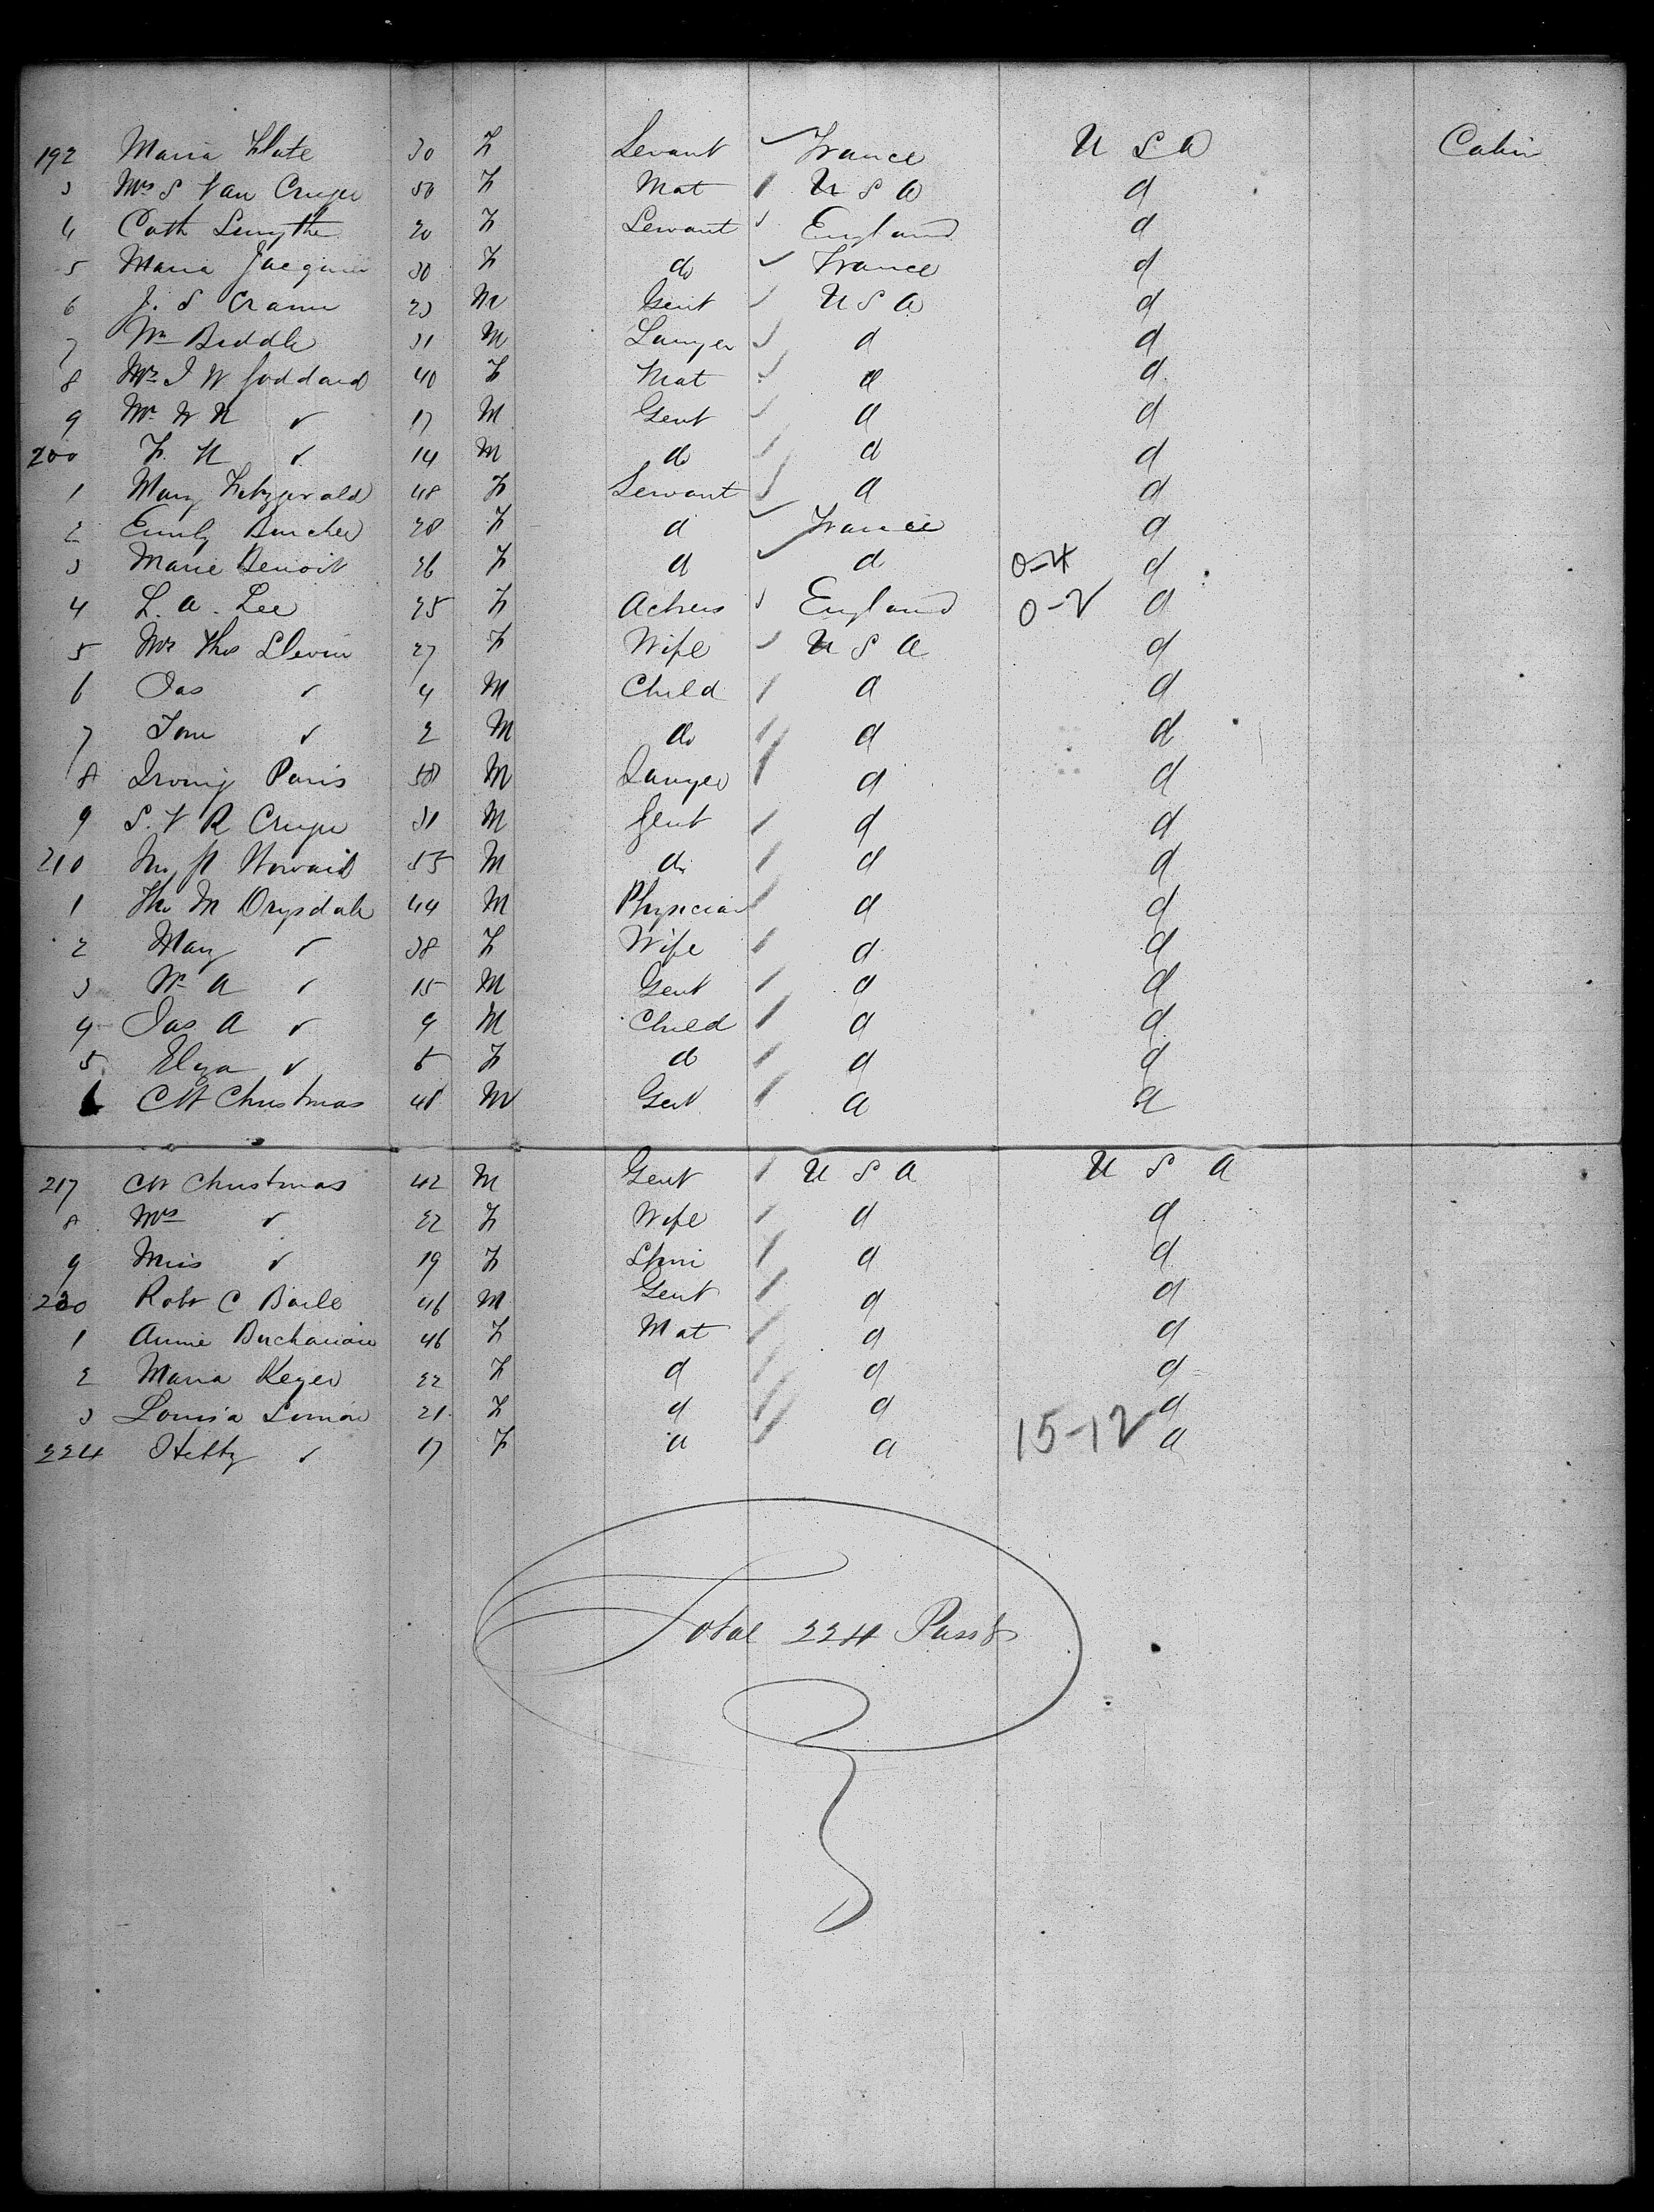 192 Maria Flate 30 F Servant ✓ France U S A Cabin
3 Mrs S Van Cruger 50 F Mat U S A d
4 Cath Smythe 20 F Servant England d
5 Maria Jacquin 30 F do ✓ France d
6 J. S Cram 23 M Gent U S A d
7 Wm Biddle 31 M Lawyer d d
8 Mrs J W Goddard 40 F Mat d d
9 Mr W N ✓ 17 M Gent d d
200 F. N ✓ 14 M do d d
1 Mary Fitzgerald 48 F Servant d d
2 Emily Burcher 28 F d ✓ France d
3 Marie Benoit 26 F d ✓ d 0-4 d
4 L. A. Lee 25 F Actress England 0-2 d
5 Mrs Thos Slevin 27 F Wife U S A d
6 Jas ✓ 4 M Child d d
7 Tom ✓ 2 M do d d
8 Irving Paris 50 M Lawyer d d
9 S. V R Cruger 31 M Gent d d
210 Howard 55 M do d d
1 Tho M Drysdale 44 M Physician d d
2 Mary ✓ 38 F Wife d d
3 Wm A ✓ 15 M Gent d d
4 Jas A ✓ 9 M Child d d
5 Eliza ✓ 5 F do d d
6 CH Christmas M Gent d d
217 CH Christmas 42 M Gent U S A U S A
8 Mrs ✓ 22 F Wife d d
9 Miss ✓ 19 F Spin d d
220 Robt C 46 M Gent d d
1 Annie Buchanan 46 F Mat d d
2 Maria Keyer 22 F d d d
3 Louisa Simon 21 F d d d
224 Hetty ✓ 17 F d d 15-12 d
Total 224 Passrs